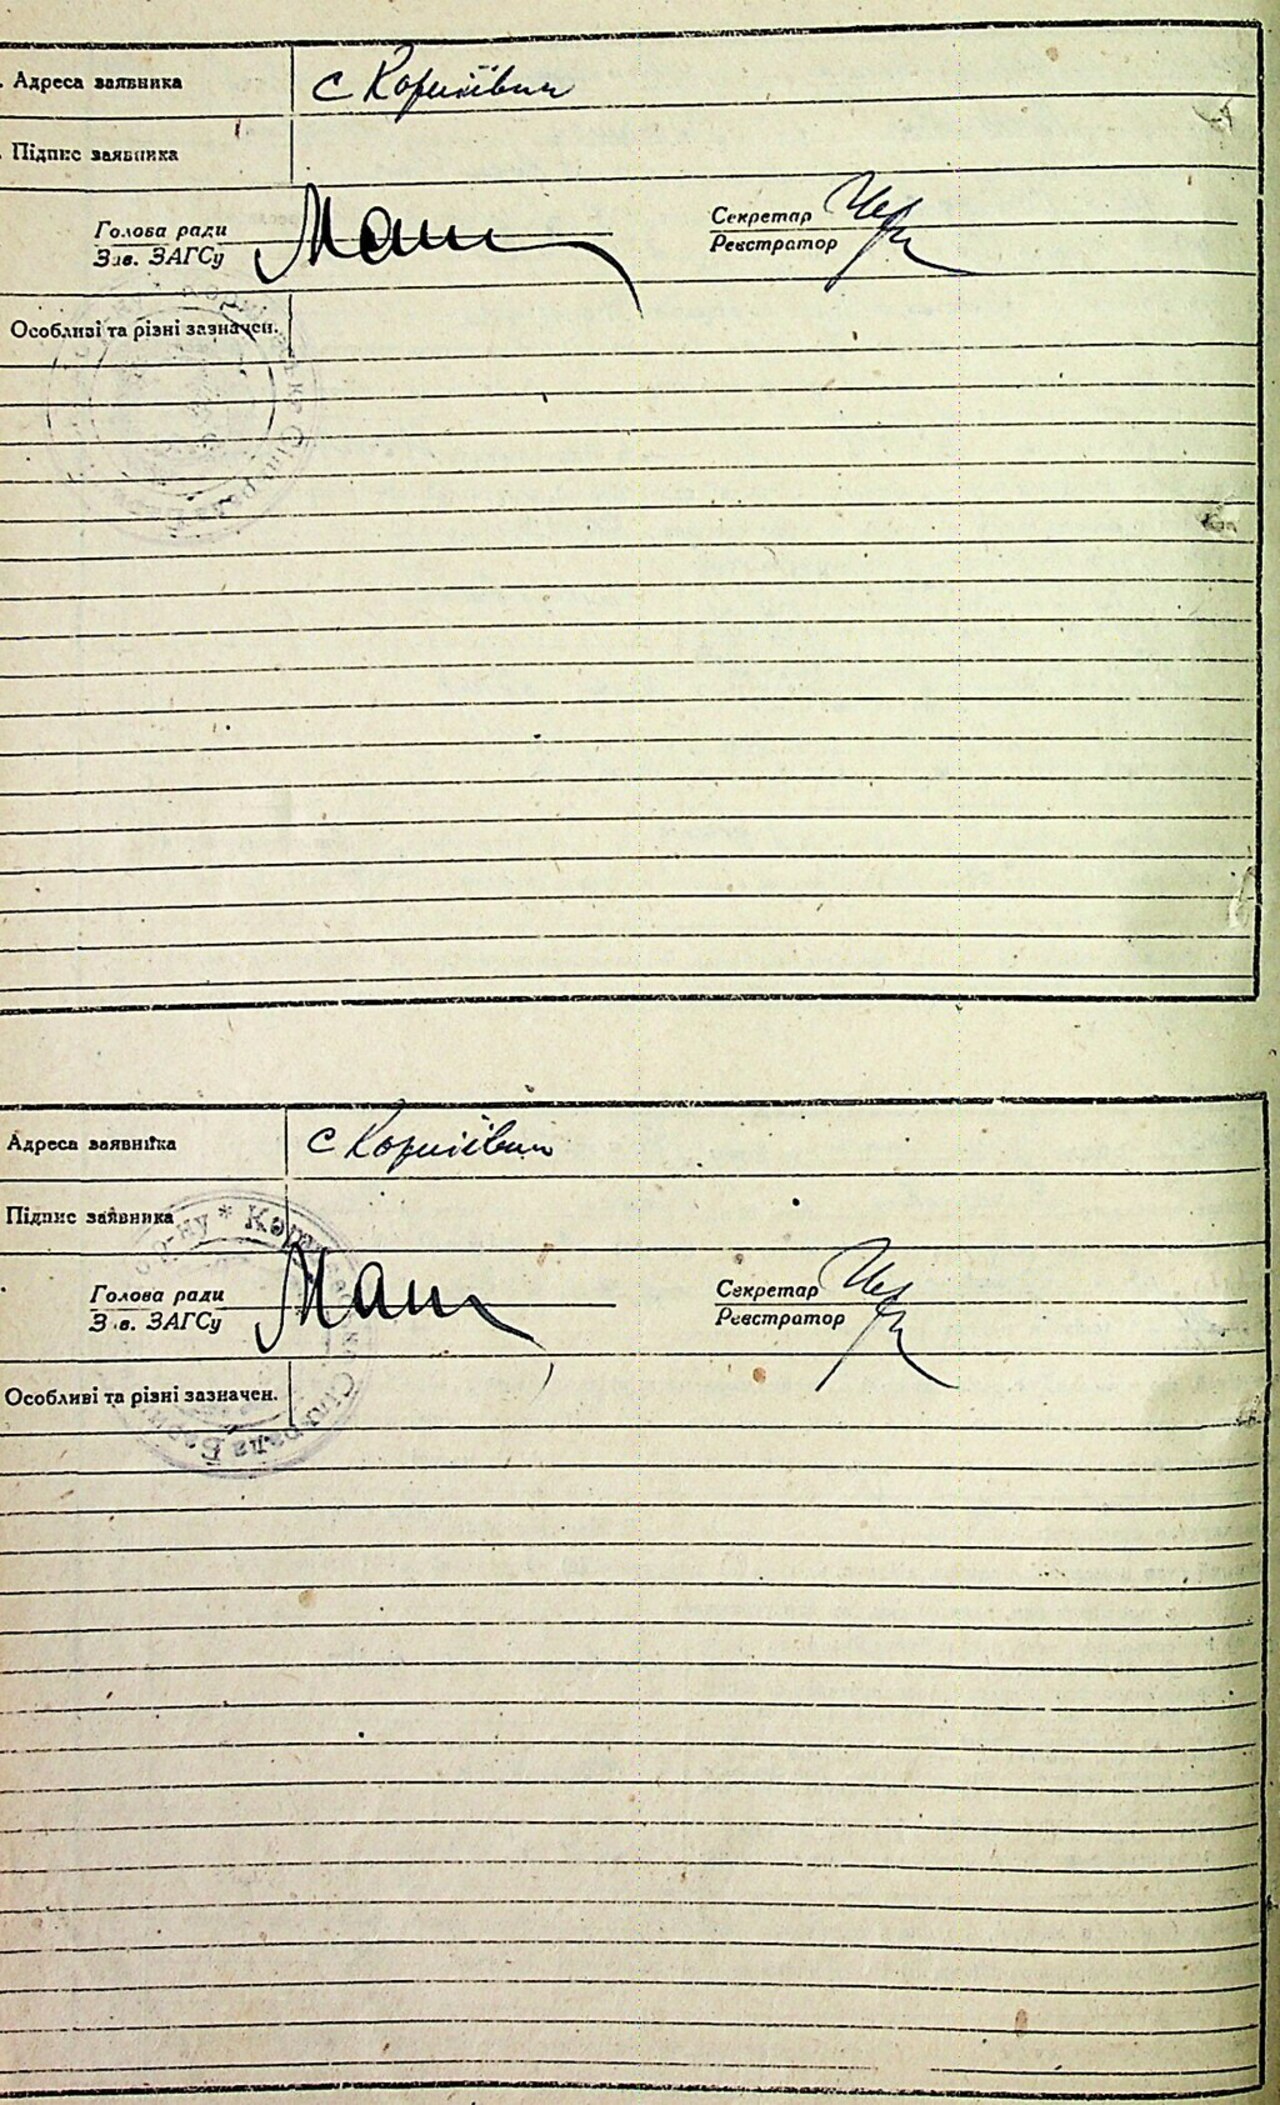 Адреса заявника с Корніївки
Підпис заявника
Голова ради Секретар
Зав. ЗАГСу Реєстратор
Особливі та різні зазначен.
Адреса заявника с Корніївки
Підпис заявника
Голова ради Секретар
Зав. ЗАГСу Реєстратор
Особливі та різні зазначен.
р-ну * Сільрада